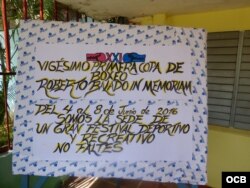 XXI
VIGÉSIMO PRIMERA COPA DE
BOXEO
ROBERTO IN MEMORIAM
DEL 4 AL 8 de Junio de 2016
SOMOS LA SEDE DE
UN GRAN FESTIVAL DEPORTIVO
Y RECREATIVO
NO FALTES
OCB